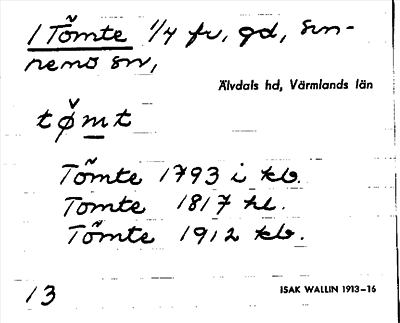 1 Tömte 1/4 fr, gd, sun-
nemo sn,
Älvdals hd, Värmlands län
tømt
Tömte 1793 i kb.
Tomte 1817 hl.
Tömte 1912 kb.
13
ISAK WALLIN 1913-16